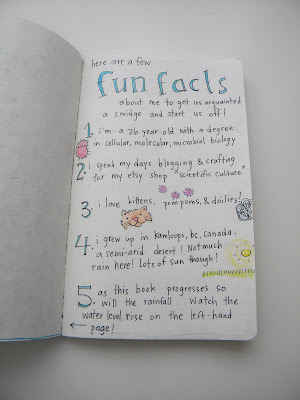 here are a few
fun facts
about me to get us acquainted
a smidge and start us off!
1. i'm a 26 year old with a degree
in cellular, molecular, microbial biology
2. i spend my days blogging & crafting
for my etsy shop "scientific culture"
3. i love kittens, pom poms, & doilies!
4. i grew up in Kamloops, bc, Canada.
a semi-arid desert! Not much
rain here! Lots of sun though!
5. as this book progresses so
will the rainfall. Watch the
water level rise on the left-hand
page!